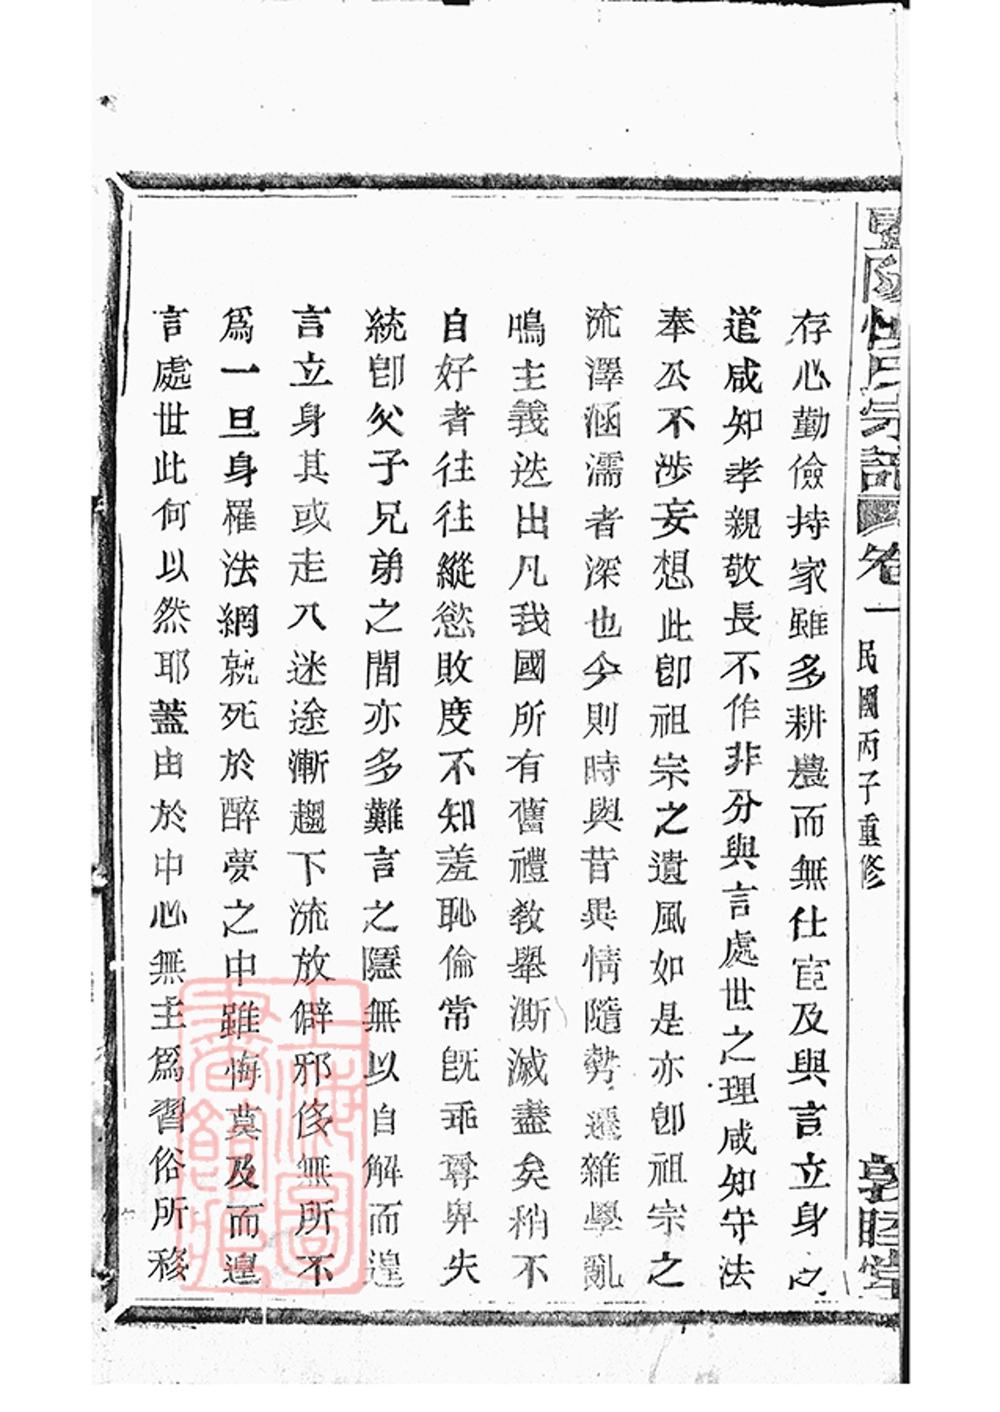 暨陽㤗氏宗譜卷一 民國丙子重修 敦睦堂
存心勤儉持家雖多耕農而無仕宦及與言立身之
道咸知孝親敬長不作非分與言處世之理咸知守法
奉公不涉妄想此卽祖宗之遺風如是亦卽祖宗之
流澤涵濡者深也今則時與昔異情隨勢遷雜學亂
鳴主義迭出凡我國所有舊禮教舉澌滅盡矣稍不
自好者往往縱慾敗度不知羞恥倫常旣乖尊卑失
統卽父子兄弟之間亦多難言之隱無以自解而遑
言立身其或走入迷途漸趨下流放僻邪侈無所不
爲一旦身羅法網就死於醉夢之中雖悔莫及而遑
言處世此何以然耶蓋由於中心無主爲習俗所移
上海圖
書館藏